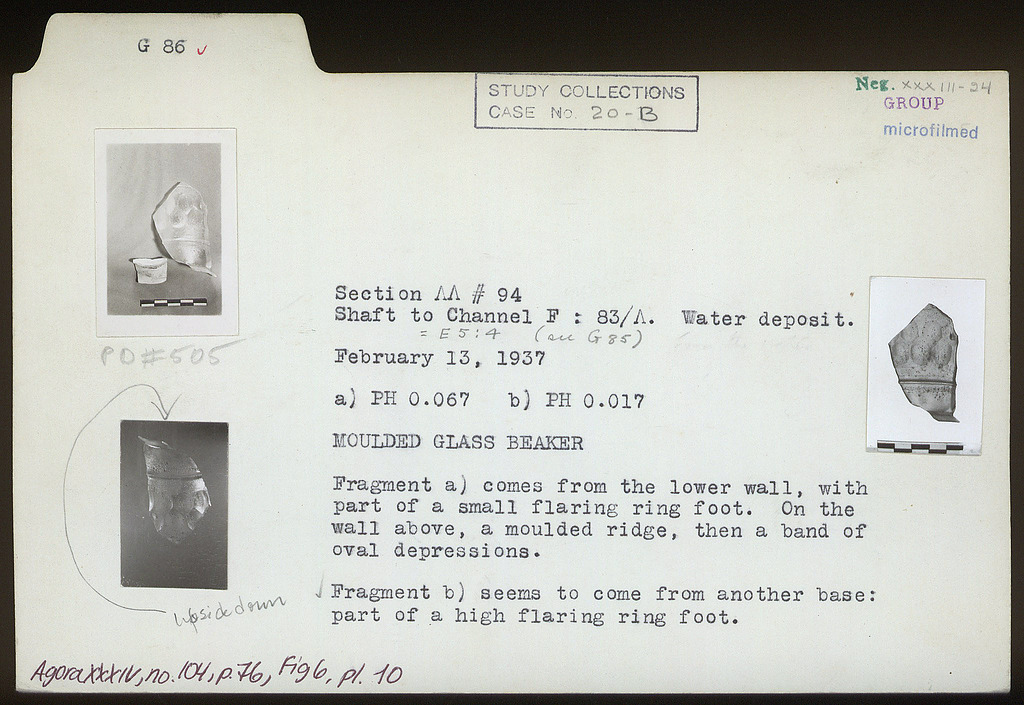 G 86 ✓
STUDY COLLECTIONS
CASE No. 20-B
Neg. XXXIII-24
GROUP
microfilmed
PD#505
Section ΛΛ # 94
Shaft to Channel F : 83/Λ. Water deposit.
= E 5:4 (see G 85)
February 13, 1937
a) PH 0.067 b) PH 0.017
MOULDED GLASS BEAKER
Fragment a) comes from the lower wall, with
part of a small flaring ring foot. On the
wall above, a moulded ridge, then a band of
oval depressions.
✓ Fragment b) seems to come from another base:
part of a high flaring ring foot.
upside down
Agora XXXIV, no. 104, p. 76, Fig 6, pl. 10